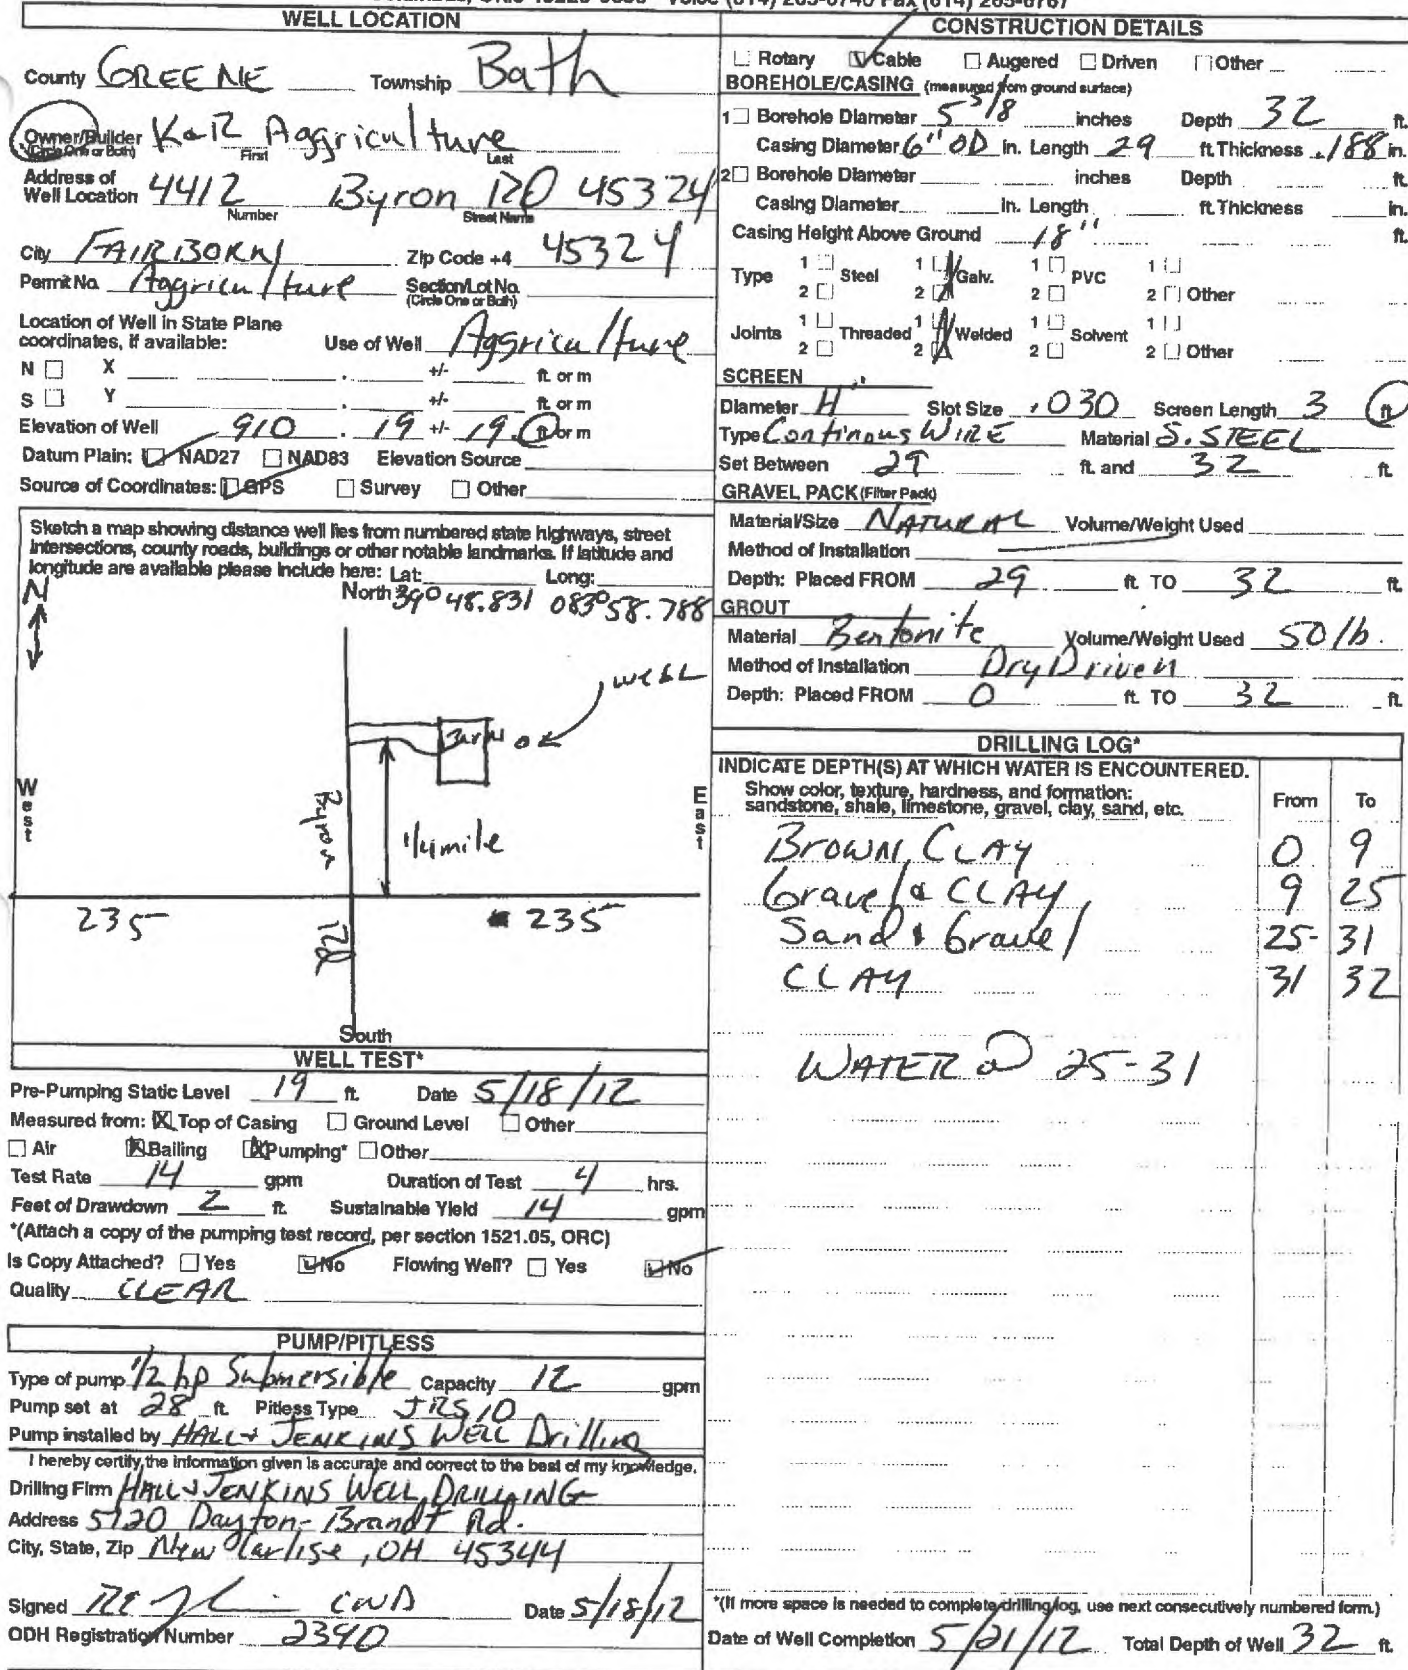 WELL LOCATION
County GREENE Township Bath
Owner/Builder K & R Aggriculture
(Circle One or Both) First Last
Address of
Well Location 4412 Byron RD 45324
Number Street Name
City FAIRBORN Zip Code +4 45324
Permit No. Aggriculture Section/Lot No.
(Circle One or Both)
Location of Well in State Plane
coordinates, if available: Use of Well Aggriculture
N X +/- ft. or m
S Y +/- ft. or m
Elevation of Well 910 . 19 +/- 19. ft or m
Datum Plain: NAD27 NAD83 Elevation Source
Source of Coordinates: GPS Survey Other
Sketch a map showing distance well lies from numbered state highways, street
intersections, county roads, buildings or other notable landmarks. If latitude and
longitude are available please include here: Lat: Long:
N North 39° 48.831 083° 58.788
WELL
Barn
West
Byron
1/4 mile
East
235 235
Rd
South
WELL TEST*
Pre-Pumping Static Level 19 ft. Date 5/18/12
Measured from: Top of Casing Ground Level Other
Air Bailing Pumping* Other
Test Rate 14 gpm Duration of Test 4 hrs.
Feet of Drawdown 2 ft. Sustainable Yield 14 gpm
*(Attach a copy of the pumping test record, per section 1521.05, ORC)
Is Copy Attached? Yes No Flowing Well? Yes No
Quality CLEAR
PUMP/PITLESS
Type of pump 1/2 hp Submersible Capacity 12 gpm
Pump set at 28 ft. Pitless Type JRS10
Pump installed by HALL & JENKINS WELL Drilling
I hereby certify the information given is accurate and correct to the best of my knowledge.
Drilling Firm HALL & JENKINS WELL DRILLING
Address 5120 Dayton-Brandt Rd.
City, State, Zip New Carlise, OH 45344
Signed CWD Date 5/18/12
ODH Registration Number 2390
CONSTRUCTION DETAILS
Rotary Cable Augered Driven Other
BOREHOLE/CASING (measured from ground surface)
1 Borehole Diameter 5 3/8 inches Depth 32 ft.
Casing Diameter 6" OD in. Length 29 ft. Thickness .188 in.
2 Borehole Diameter inches Depth ft.
Casing Diameter in. Length ft. Thickness in.
Casing Height Above Ground 18" ft.
Type 1 Steel 1 Galv. 1 PVC 1
2 2 2 2 Other
Joints 1 Threaded 1 Welded 1 Solvent 1
2 2 2 2 Other
SCREEN
Diameter 4" Slot Size .030 Screen Length 3 ft
Type Continous WIRE Material S. STEEL
Set Between 29 ft. and 32 ft.
GRAVEL PACK (Filter Pack)
Material/Size NATURAL Volume/Weight Used
Method of Installation
Depth: Placed FROM 29 ft. TO 32 ft.
GROUT
Material Bentonite Volume/Weight Used 50 lb.
Method of Installation Dry Driven
Depth: Placed FROM 0 ft. TO 32 ft.
DRILLING LOG*
INDICATE DEPTH(S) AT WHICH WATER IS ENCOUNTERED.
Show color, texture, hardness, and formation: From To
sandstone, shale, limestone, gravel, clay, sand, etc.
BROWN CLAY 0 9
Gravel & CLAY 9 25
Sand & Gravel 25- 31
CLAY 31 32
WATER @ 25-31
*(If more space is needed to complete drilling log, use next consecutively numbered form.)
Date of Well Completion 5/21/12 Total Depth of Well 32 ft.